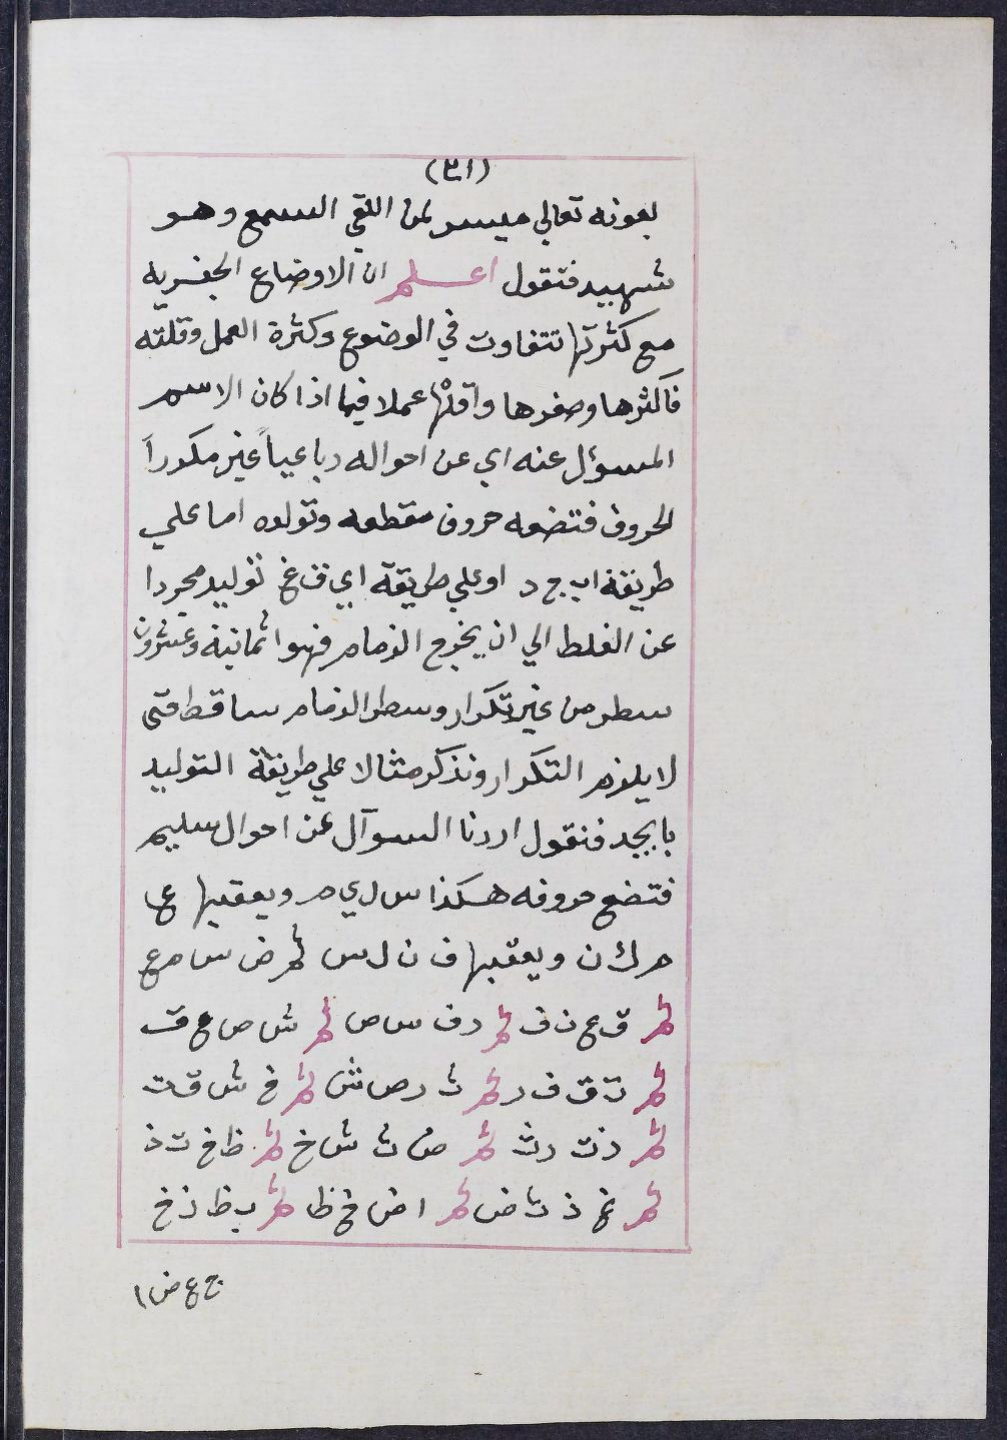 (٣١)
بعونه تعالي ميسر لمن القي السمع وهو
شهيد فنقول اعلم ان الاوضاع الجفريه
مع كثرتها تتفاوت في الوضوع وكثرة العمل وقلته
فاكثرها وصغرها واقلها عملا فيما اذا كان الاسم
المسؤل عنه اي عن احواله رباعياً غير مكوراً
الحروف فتضعه حروف مقطعه وتولده اما علي
طريقة اب ج د او علي طريقة اي ق غ توليد مجردا
عن الغلط الي ان يخرج الزمام فهوا ثمانية وعشرون
سطر من غير تكرار وسطر الزمام ساقط متى
لا يلزم التكرار ونذكر مثالا علي طريقة التوليد
بابجد فنقول اردنا السوآل عن احوال سليم
فتضع حروفه هكذا س ل ي م ويعقبها ع
م ك ن ويعقبها ف ن ل س ثم ص س م ع
ثم ق ع ن ف ثم ر ف س ص ثم ش ص ع ق
ثم ت ق ف ر ثم ث ر ص ش ثم خ ش ق ت
ثم ذ ت ر ث ثم ض ث ش خ ثم ظ خ ت ذ
ثم غ ذ ث ض ثم ا ض خ ظ ثم ب ظ ذ غ
ج غ ض ا